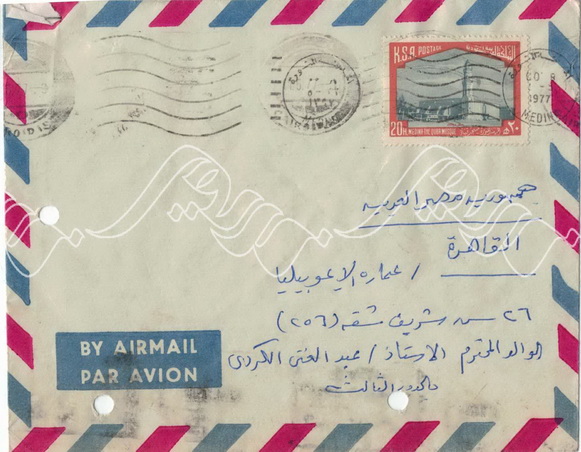 K.S.A. POSTAGE
20H. MEDINA THE QUBA MOSQUE ٢٠ هـ
1977
MEDIN
جمهورية مصر العربية
القاهرة
عمارة الايموبيليا /
٢٦ ش شريف شقة (٢٥٦)
الوالد المحترم الاستاذ / عبد الغنى الكردى
بالدور الثالث
BY AIRMAIL
PAR AVION